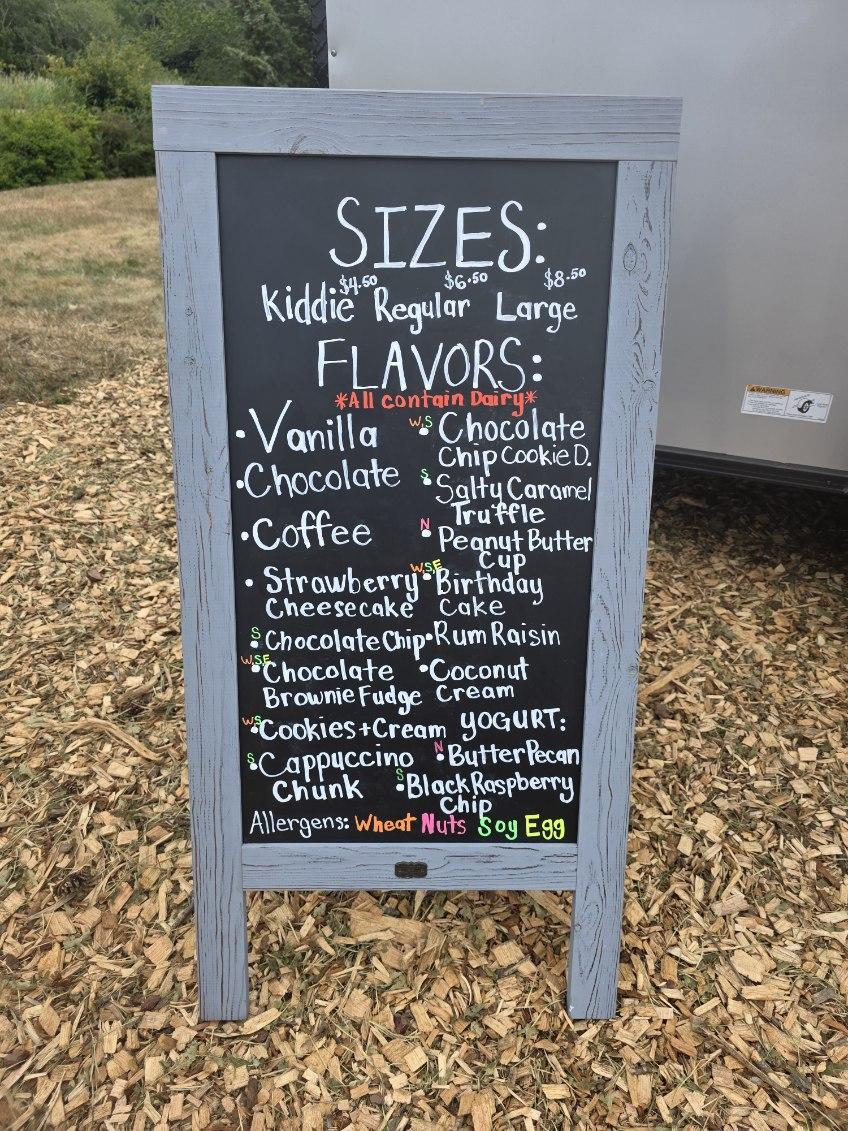 SIZES:
$4.50 $6.50 $8.50
Kiddie Regular Large
FLAVORS:
*All contain Dairy*
• Vanilla
• Chocolate
• Coffee
• Strawberry
Cheesecake
S • Chocolate Chip
W,S,E • Chocolate
Brownie Fudge
W,S • Cookies + Cream
S • Cappuccino
Chunk
W,S • Chocolate
Chip Cookie D.
S • Salty Caramel
Truffle
N • Peanut Butter
Cup
W,S,E • Birthday
Cake
• Rum Raisin
• Coconut
Cream
YOGURT:
N • Butter Pecan
S • Black Raspberry
Chip
Allergens: Wheat Nuts Soy Egg
WARNING